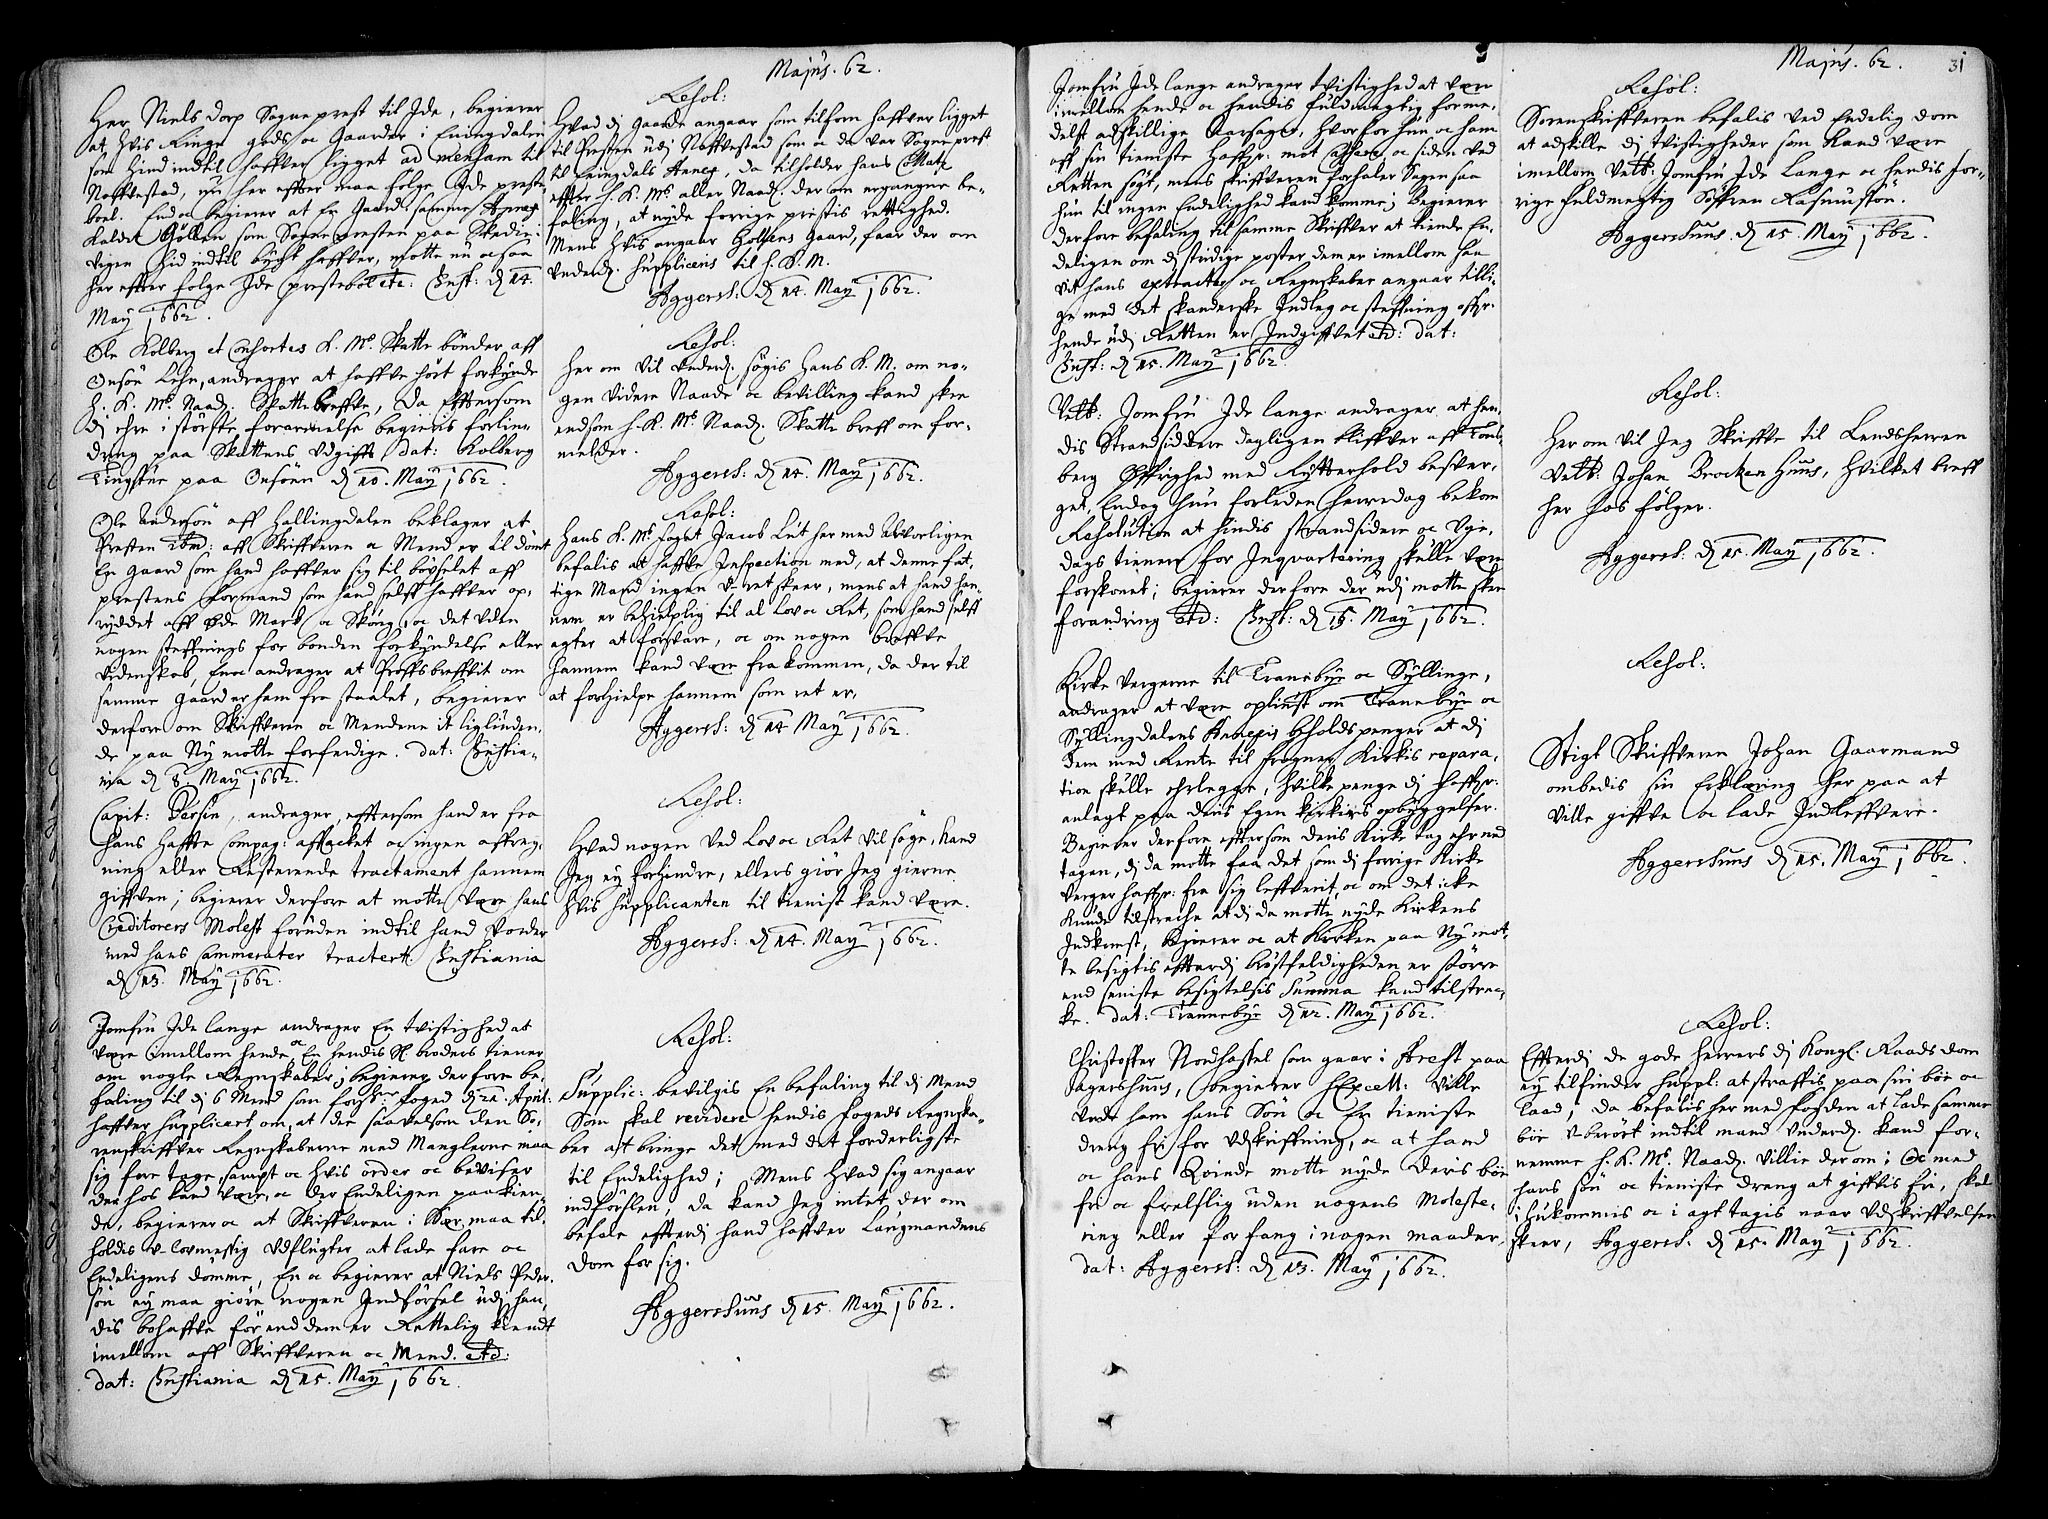 Majus. 62.
Her Niels Dorp Sogneprest til Jde, begierer
at hvis Ringe gods oc Gaarder i Eningdalen
som hind indtil haffver ligget ad mensam til
Naffvestad, nu her effter maa følge Jde preste-
boel. End oc begierer at En Gaard i samme
Kaldet Hollen som Sogne presten paa
vigen hid indtil bøxt haffver, motte nu ocsaa
her effter følge Jde prestebol etc: Christ: d 14.
May 1662.
Ole Kolberg et Consortes K. Ms. Skatte bønder aff
Onsøe Lehn, andrager at haffve hørt forkynde
h. K. Ms. Naad. Skattebreffve, Da Effterson
di ehre i største forarmelse begieris forlin-
dring paa Skattens udgifft dat: Kolberg
Tingstue paa Onsøen d 10. May 1662.
Ole Andersøn aff Hallingdalen beklager at
Presten ibm: aff Skriffveren oc Mend er til dømt
En gaard som hand haffver sig til bøxelet aff
prestens formand som hand selff haffver op-
ryddet aff øde Mark oc Skoug, oc det uden
nogen steffnings for bonden forkyndelse eller
videnskab, End oc andrager at Prøffsbreffvit om
samme gaard er ham fra staalet, begierer
derfore om Skriffveren oc Mendene it
de paa Ny motte forferdige. dat: Christia-
nia d 8. May 1662.
Capit: Dorsin, andrager, efftersom hand er fra
hans haffte Compag: afftacket oc ingen affreg-
ning eller Resterende tractament hannem
giffven; begierer derfore at motte være hans
Creditorers Molest foruden indtil hand vorder
med hans Cammerater tractert Christiania
d 13. May 1662.
Jomfru Jde Lange andrager En tvistighed at
være imellom hende oc En hendis Sl. broders tiener
om nogle Regnskaber; begierer derfore be-
faling til di 6 Mend som forhs: foged d 22. April:
haffver suppliceret om, at dee saavelsom den So-
renskriffver Regnskaberne med Manglerne maa
sig fore tage, sampt oc hvis order oc beviser
der hos kand være, oc der Endeligen paakien-
de, begierer oc at Skriffveren i maa til-
holdis u-lovmessig Udflugter at lade fare oc
Endeligens dømme, End oc begierer at Niels Peder-
søn ey maa giøre nogen Indførsel udi hen-
dis bohaffve før end dem er Rettelig kiendt
imellom aff Skriffveren oc Mend. etc:
dat: Christiania d 15. May 1662.
Resol:
Hvad di Gaarde angaar som tilforn haffver ligget
til Presten udi Naffvestad som oc da var Sogne prest
til Eningdals Anneg, da tilholder hans
effter h. K. Ms. aller Naad. der om ergangne be-
faling, at nyde forrige prestis rettighed.
Mens hvis angaar Hollens Gaard, faar der om
Underd. suppliceris til h. K. M.
Aggersh: d 14. May 1662.
Resol:
Her om vil Underd. søgis hans K. M. om no-
gen videre Naade oc bevilling kand skee
endsom h. K. Ms. Naad. Skatte breff om for-
melder.
Aggersh: d 14. May 1662.
Resol:
Hans K. Ms. foget Jacob Lut her med Alvorligen
befalis at haffve Inspection med, at denne fat-
tige Mand ingen u-ret skeer, mens at hand han-
nem er behielplig til al Lov oc Ret, som hand selff
agter at forsvare, oc om nogen breffve
hannem kand være frakommen, da der til
at forhielpe hannem som ret er,
Aggersh: d 14 May 1662.
Resol:
Hvad nogen ved Lov oc Ret vil søge, kand
Jeg ey forhindre, ellers giør Jeg gierne
hvis supplicanten til tienist kand være.
Aggersh: d 14. May 1662.
Resol:
Supplic: bevilgis En befaling til di Mend
som skal revidere hendis fogeds Regnska-
ber at bringe det med det forderligste
til Endelighed; Mens hvad sig angaar
indførslen, da kand Jeg intet der om
befale effterdi hand haffver Laugmandens
Dom for sig.
Aggershuus d 15. May 1662.
Majus. 62.
31
Jomfru Jde Lange andrager tvistighed at være
imellom hende oc hendis fuldmegtig forme-
delst adskillige Aarsager, hvorfor hun oc ham
aff sin tieniste haffr: mot oc siden ved
Retten søgt, mens Skriffveren forhaler Sagen saa
hun til ingen Endelighed kand komme; begierer
derfore befaling til samme Skriffver at kiende En-
deligen om di stridige poster dem er imellom saa
vit hans extracter oc Regnskaber angaar tilli-
ge med det skanderske Indleg oc steffning offr.
hende udi Retten er Indgiffvet etc: dat:
Christ: d 15. May 1662.
Velb: Jomfru Jde Lange andrager at hen-
dis Strandsiddere dagligen bliffver aff Tons-
berg Øffrighed med Rytterhold besver-
get, Endog hun forleden herredag bekom
Resolution at hindis strandsidere oc Uge-
dags tienere for Inqvartering skulle være
forskonet; begierer derfore der udi motte skee
forandring etc: Christ: d 15. May 1662.
Kirke Vergerne til Tranebye oc Syllinge,
andrager at være oplinst om Tranebye oc
Syllingdalens Kneegts holdspenger at di
dem med Rente til frogner Kirkis repara-
tion skulle ehrlegge, hvilke penge di haffr:
anlagt paa deris Egen kirkis opbyggelser.
Begierer derfore efftersom deris Kirke tag ehr ned
tagen, di da motte faa det som di forrige Kirke
Verger haffr: fra sig leffverit, oc om det icke
kunde tilstreche at di da motte nyde Kirkens
Indkomst, begierer oc at Kirken paa Ny mot-
te besigtis effterdi brøstfeldigheden er større
end seniste besigtelsis Summa kand tilstrec-
ke. dat: Trannebye d 12. May 1662.
Christoffer Nordhassel som gaar i Arest paa
Agershuus, begierer hs Excell: ville
unde ham hans Søn oc En tieniste
dreng fri for udskriffning, oc at hand
oc hans Qvinde motte nyde deris bøe
fri oc frelselig uden nogens Moleste-
ring eller forfang i nogen maader.
dat: Aggersh: d 13. May 1662.
Resol:
Sorenskriffveren befalis ved Endelig dom
at adskille di tvistigheder som kand være
imellom Velb: Jomfru Jde Lange oc hendis for-
rige fuldmegtig Søffren Rasmussøn.
Aggershuus. d 15. May 1662.
Resol:
Her om vil Jeg Skriffve til Lendsherren
Velb: Johan Brocken Huus, hvilket breff
her hos følger.
Aggersh: d 15. May 1662.
Resol:
Stigt Skriffveren Johan Gaarmand
ombedis sin Erklæring her paa at
ville giffve oc lade Indleffvere.
Aggershuus d 15. May 1662.
Resol:
Effterdi de gode herrers di Kongl. Raads dom
ey tilfinder suppl: at straffis paa sin boe oc
Laad, da befalis her med foeden at lade samme
boe u-berørt indtil mand Underd. kand for-
nemme h. K. Ms. Naad. Villie der om; Oc med
hans søn oc tieniste dreng at giffvis fri, skal
ihukommis oc i agt tagis naar Udskriffvelsen
skeer, Aggersh. d 15. May 1662.